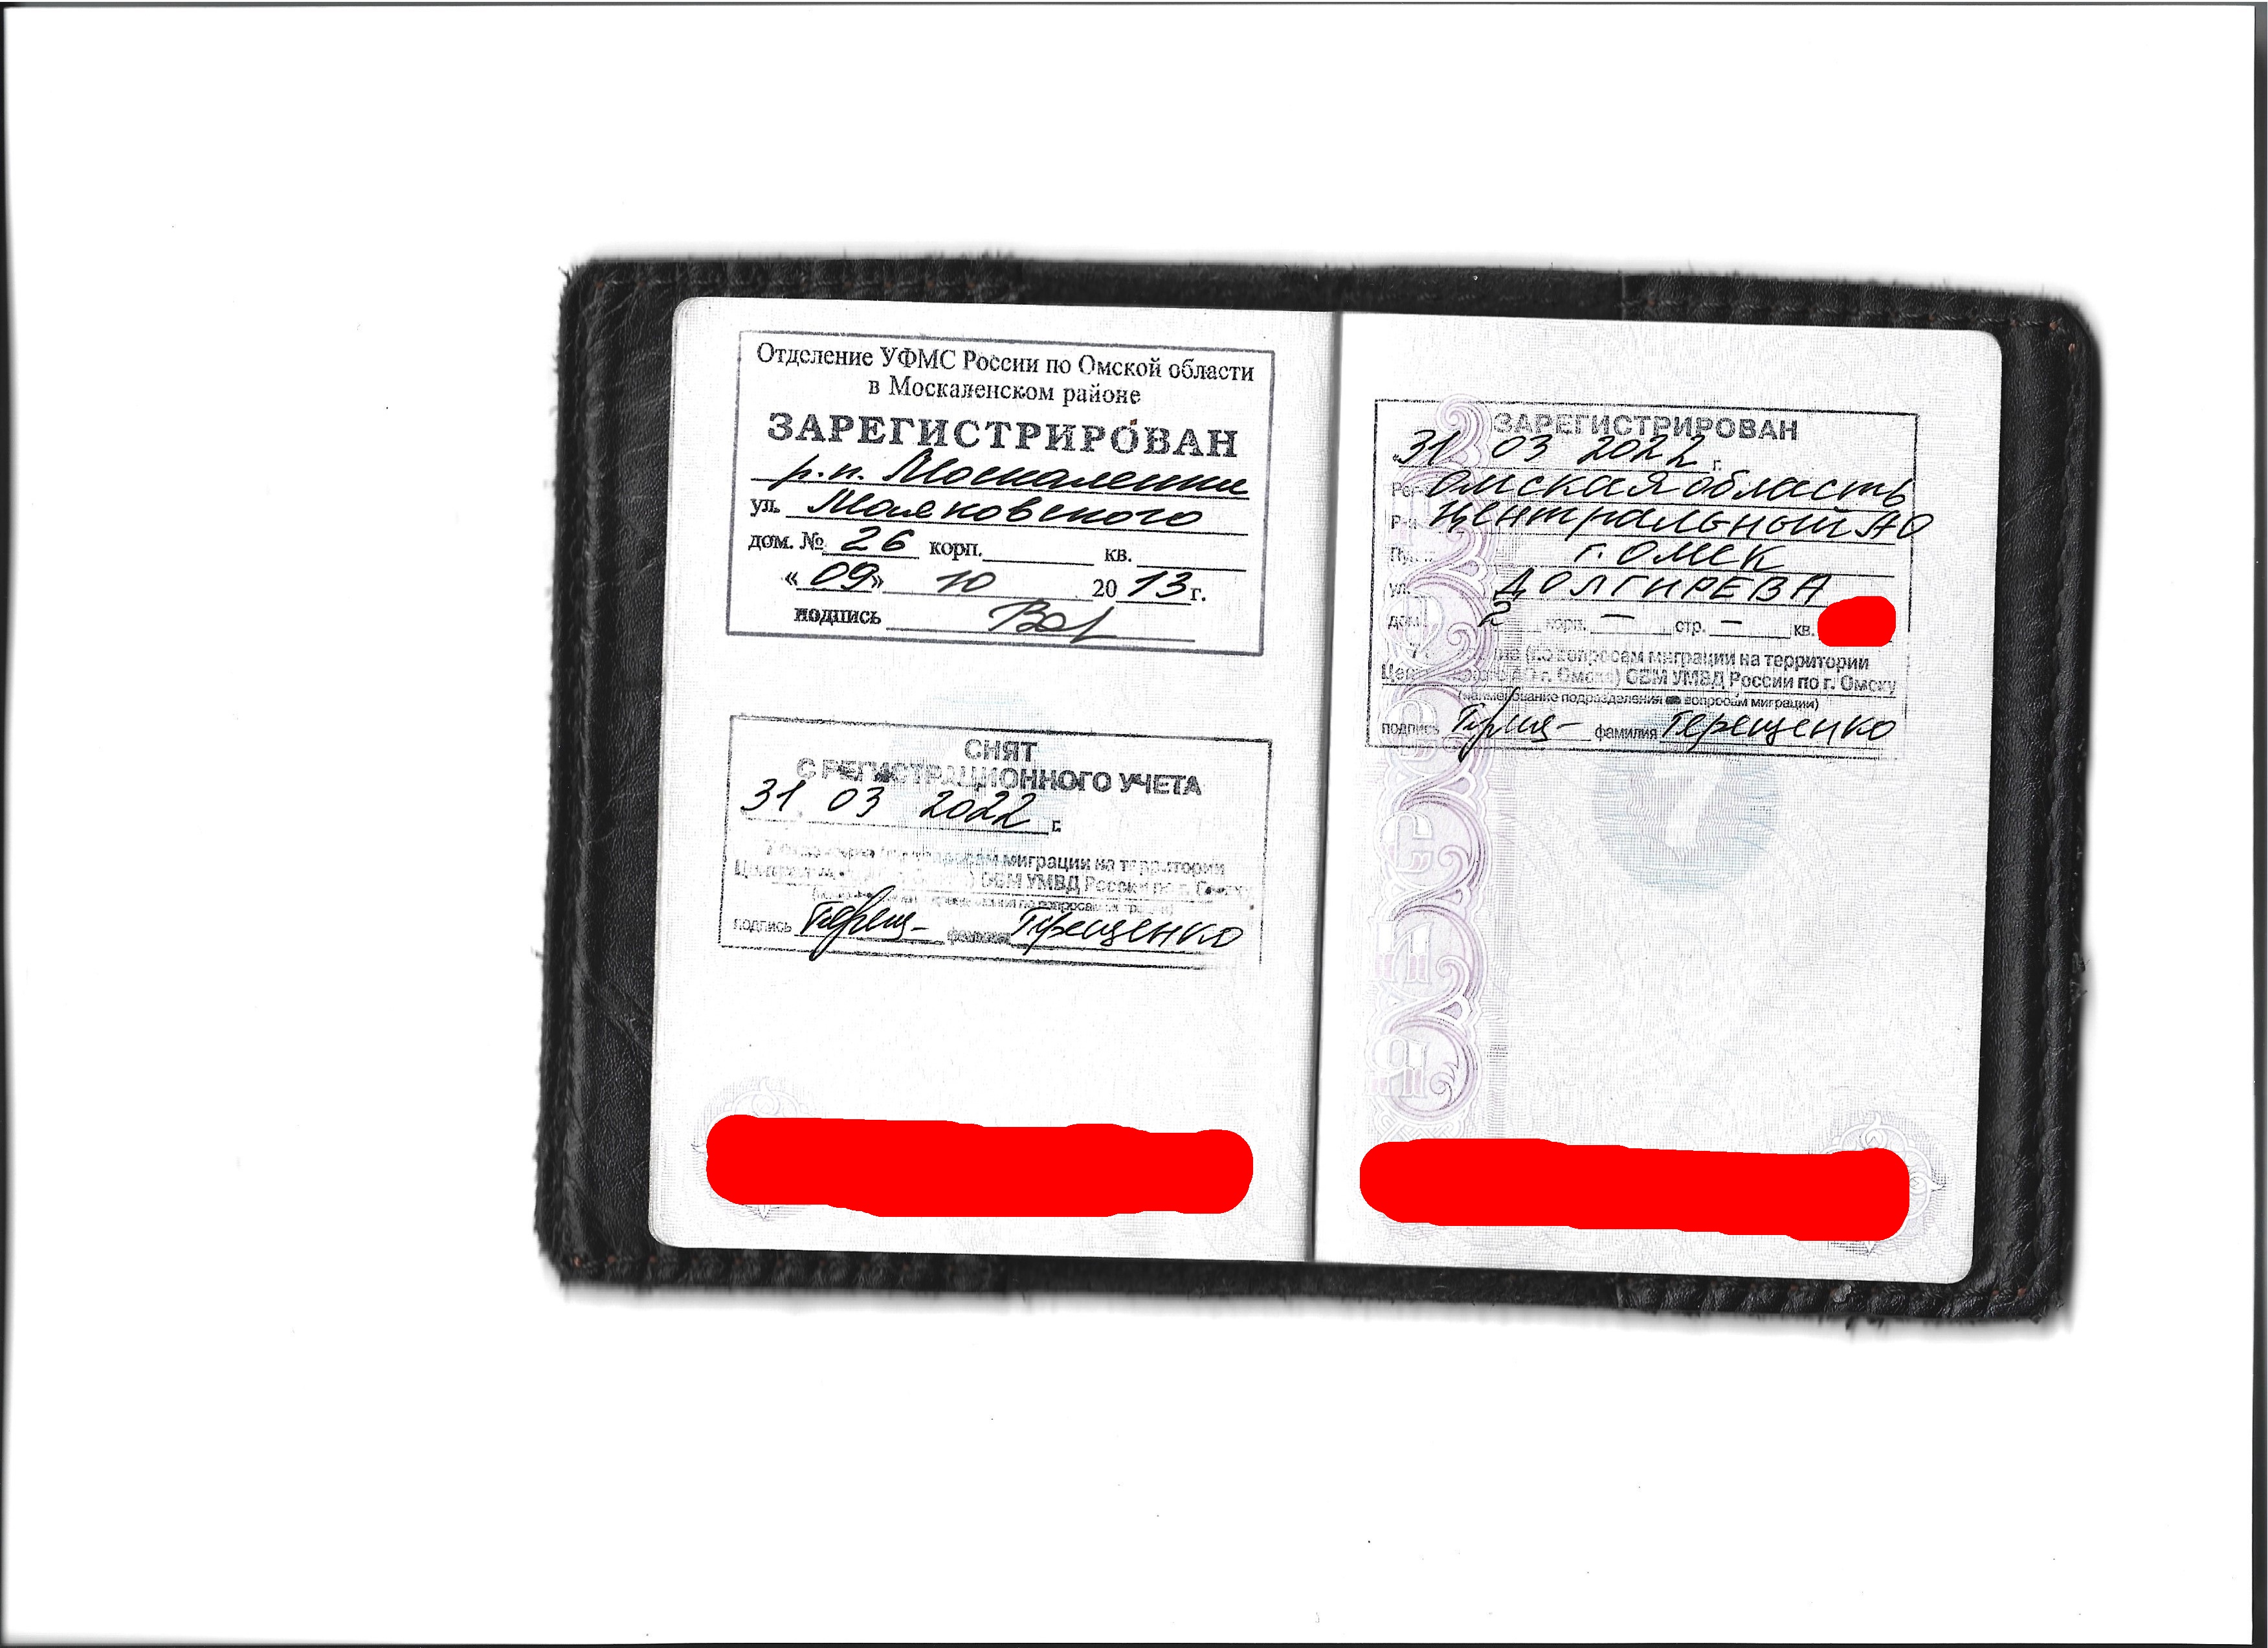 Отделение УФМС России по Омской области
в Москаленском районе
ЗАРЕГИСТРИРОВАН
р.п. Москаленки
ул. Маяковского
дом. № 26 корп. кв.
«09» 10 2013 г.
подпись
СНЯТ
С РЕГИСТРАЦИОННОГО УЧЕТА
31 03 2022 г.
миграции на территории
ОВМ УМВД России по г. Омску
подпись фамилия Терещенко
ЗАРЕГИСТРИРОВАН
31 03 2022 г.
Омская область
Центральный АО
г. ОМСК
ул. ДОЛГИРЕВА
дом 2 корп. — стр. — кв.
(по вопросам миграции на территории
г. Омска) ОВМ УМВД России по г. Омску
(наименование подразделения по вопросам миграции)
подпись фамилия Терещенко
7